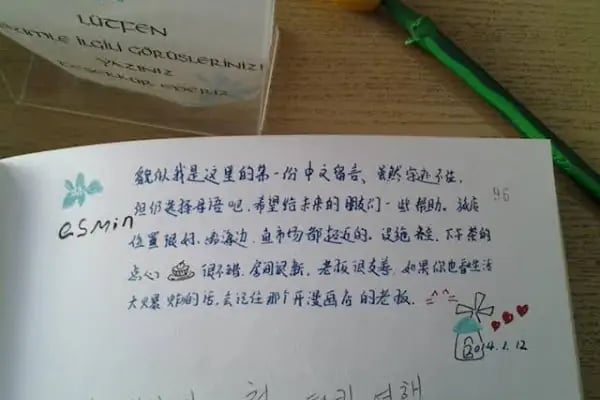 LÜTFEN
BİZİMLE İLGİLİ GÖRÜŞLERİNİZİ
YAZINIZ
TEŞEKKÜR EDERİZ
貌似我是这里的第一份中文留言、虽然字赶不佳,
但仍选择母语吧,希望给未来的朋友们一些帮助。旅店
esmin
96
位置很好,离海边、鱼市场都超近的。设施齐全,下午茶的
点心 很不错,房间很新,老板很友善,如果你也看生活
大爆炸的话,会记住那个开漫画店的老板. =^^=
2014.1.12